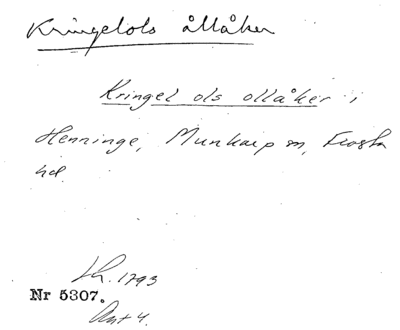 Kringelols ållåker
Kringel ols ollåker i
Henninge, Munkarp sn, Frosta
hd.
Lh. 1793
Nr 5307.
Akt 4.